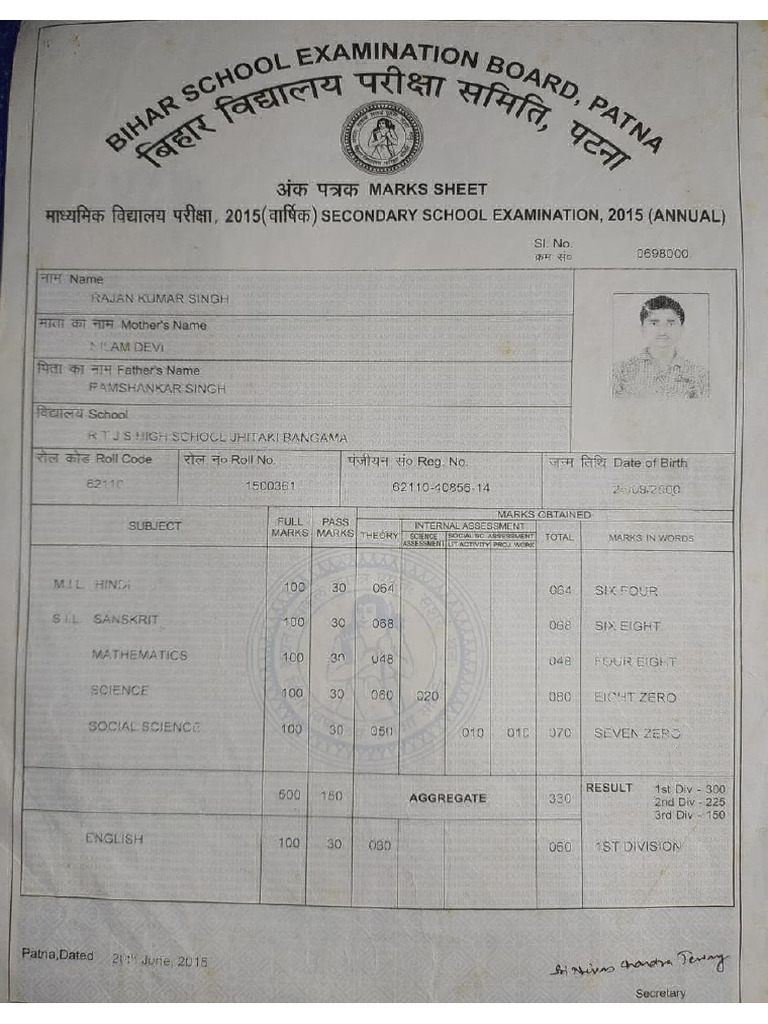 BIHAR SCHOOL EXAMINATION BOARD, PATNA
बिहार विद्यालय परीक्षा समिति, पटना
अंक पत्रक MARKS SHEET
माध्यमिक विद्यालय परीक्षा, 2015(वार्षिक) SECONDARY SCHOOL EXAMINATION, 2015 (ANNUAL)
Sl. No.
क्रम सं० 0698000
नाम Name
RAJAN KUMAR SINGH
माता का नाम Mother's Name
NILAM DEVI
पिता का नाम Father's Name
RAMSHANKAR SINGH
विद्यालय School
R T J S HIGH SCHOOL JHITAKI BANGAMA
रोल कोड Roll Code रोल नं० Roll No. पंजीयन सं० Reg. No. जन्म तिथि Date of Birth
62110 1500361 62110-40856-14
SUBJECT FULL MARKS PASS MARKS MARKS OBTAINED
THEORY INTERNAL ASSESSMENT TOTAL MARKS IN WORDS
SCIENCE ASSESSMENT SOCIAL SC. ASSESSMENT
LIT ACTIVITY PROJ. WORK
M.I.L. HINDI 100 30 064 064 SIX FOUR
S.I.L. SANSKRIT 100 30 068 068 SIX EIGHT
MATHEMATICS 100 30 048 048 FOUR EIGHT
SCIENCE 100 30 060 020 080 EIGHT ZERO
SOCIAL SCIENCE 100 30 050 010 010 070 SEVEN ZERO
500 150 AGGREGATE 330 RESULT 1st Div - 300
2nd Div - 225
3rd Div - 150
ENGLISH 100 30 060 060 1ST DIVISION
Patna,Dated June, 2015
Secretary